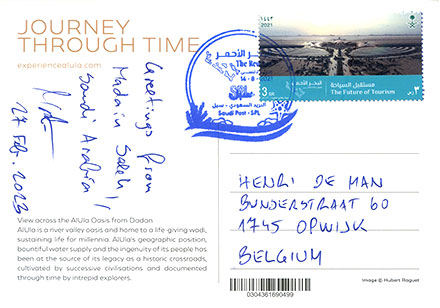 JOURNEY
THROUGH TIME
experiencealula.com
Greetings from
Madain Saleh /
Saudi Arabia
27 Feb. 2023
View across the AlUla Oasis from Dadan
AlUla is a river valley oasis and home to a life-giving wadi,
sustaining life for millennia. AlUla's geographic position,
bountiful water supply and the ingenuity of its people has
been at the source of its legacy as a historic crossroads,
cultivated by successive civilisations and documented
through time by intrepid explorers.
البحر الأحمر
The Red
14-8-2021
SPL
البريد السعودي - سبل
Saudi Post - SPL
2021
مستقبل السياحة
The Future of Tourism
3 SR
HENRI DE MAN
BUNDERSTRAAT 60
1745 OPWIJK
BELGIUM
0304361690499
Image © Hubert Raguet